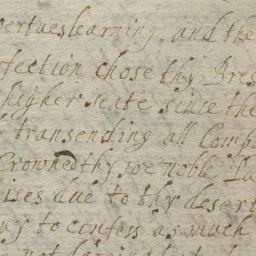 vertues learning, and the
fection chose thy Bres
higher seate since the
transending all Comp
Crowned thy soe noble
ises due to thy desert
to confess as much